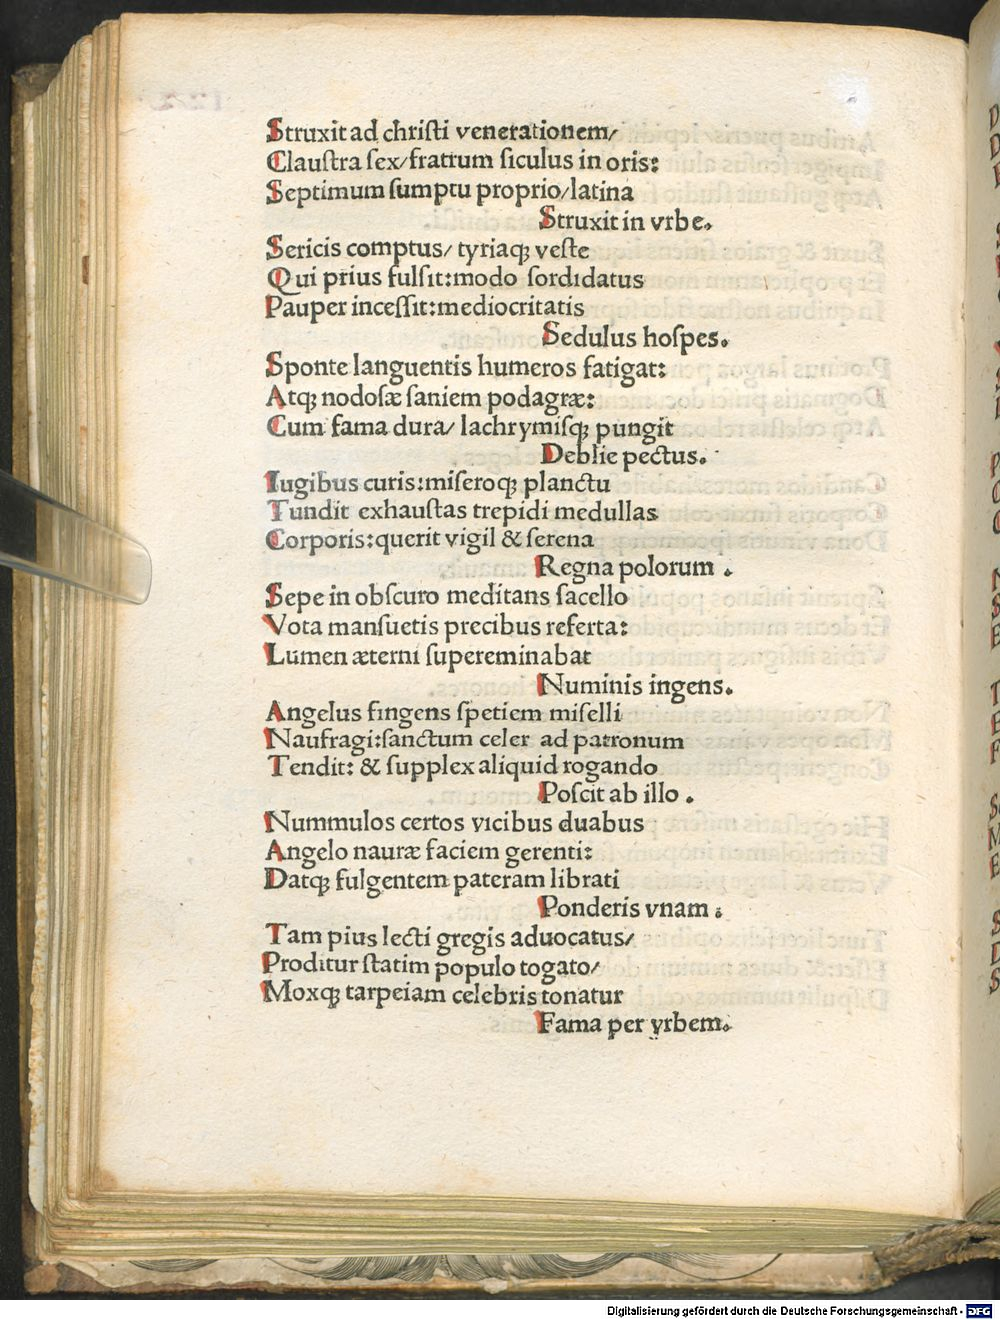 Struxit ad christi venerationem/
Claustra sex/fratrum siculus in oris:
Septimum sumptu proprio/latina
Struxit in vrbe.
Sericis comptus/ tyriaq; veste
Qui prius fulsit:modo sordidatus
Pauper incessit:mediocritatis
Sedulus hospes.
Sponte languentis humeros fatigat:
Atq; nodosæ saniem podagræ:
Cum fama dura/ lachrymisq; pungit
Deblie pectus.
Iugibus curis:miseroq; planctu
Tundit exhaustas trepidi medullas
Corporis:querit vigil & serena
Regna polorum .
Sepe in obscuro meditans sacello
Vota mansuetis precibus referta:
Lumen æterni supereminabat
Numinis ingens.
Angelus fingens spetiem miselli
Naufragi:sanctum celer ad patronum
Tendit: & supplex aliquid rogando
Poscit ab illo .
Nummulos certos vicibus duabus
Angelo nautæ faciem gerenti:
Datq; fulgentem pateram librati
Ponderis vnam .
Tam pius lecti gregis aduocatus/
Proditur statim populo togato/
Moxq; tarpeiam celebris tonatur
Fama per vrbem.
Digitalisierung gefördert durch die Deutsche Forschungsgemeinschaft - DFG